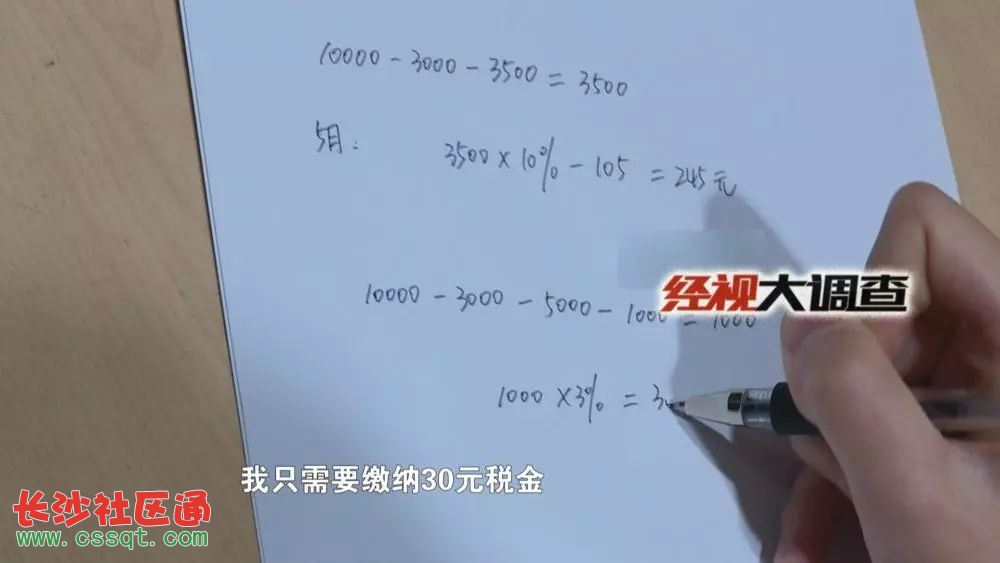 10000 - 3000 - 3500 = 3500
5月: 3500 × 10% - 105 = 245元
10000 - 3000 - 5000 - 1000 = 1000
经视大调查
1000 × 3% = 3
我只需要缴纳30元税金
长沙社区通
www.cssqt.com